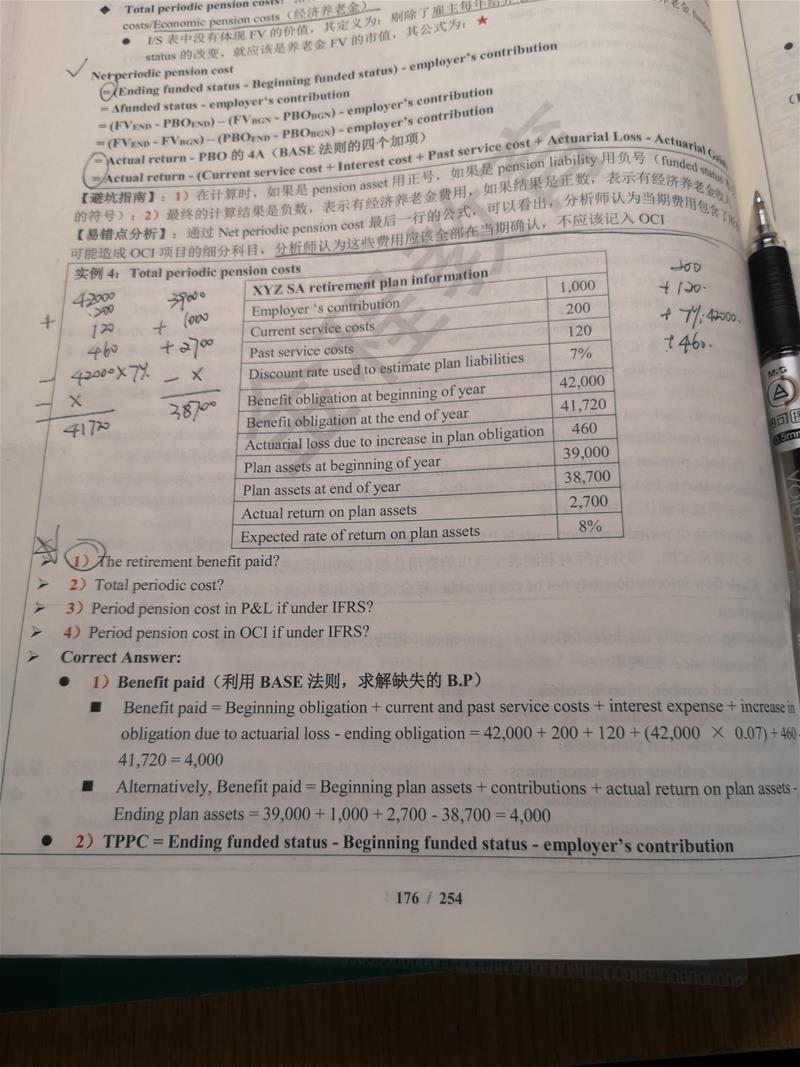 ◆ Total periodic pension costs:
costs/Economic pension costs（经济养老金）
● I/S 表中没有体现 FV 的价值，其定义为：剔除了雇主每年给养老
status 的改变，就应该是养老金 FV 的市值，其公式为：★
养老金 funded
✓ Net periodic pension cost
=(Ending funded status - Beginning funded status) - employer's contribution
= Δfunded status - employer's contribution
= (FVEND - PBOEND) – (FVBGN - PBOBGN) - employer's contribution
= (FVEND - FVBGN) – (PBOEND - PBOBGN) - employer's contribution
= Actual return - PBO 的 4A（BASE 法则的四个加项）
= Actual return - (Current service cost + Interest cost + Past service cost + Actuarial Loss - Actuarial Gain
【避坑指南】：1）在计算时，如果是 pension asset 用正号，如果是 pension liability 用负号（funded status
的符号）；2）最终的计算结果是负数，表示有经济养老金费用，如果结果是正数，表示有经济养老金收入
【易错点分析】：通过 Net periodic pension cost 最后一行的公式，可以看出，分析师认为当期费用包含了所有
可能造成 OCI 项目的细分科目，分析师认为这些费用应该全部在当期确认，不应该记入 OCI
实例 4：Total periodic pension costs
XYZ SA retirement plan information
Employer 's contribution 1,000
Current service costs 200
Past service costs 120
Discount rate used to estimate plan liabilities 7%
Benefit obligation at beginning of year 42,000
Benefit obligation at the end of year 41,720
Actuarial loss due to increase in plan obligation 460
Plan assets at beginning of year 39,000
Plan assets at end of year 38,700
Actual return on plan assets 2,700
Expected rate of return on plan assets 8%
42000
+ 200
120
460
- 42000×7%
- x
41720
39000
+ 1000
+ 2700
- x
38700
200
+ 120.
+ 7%·42000.
+ 460.
➢ 1）The retirement benefit paid?
➢ 2）Total periodic cost?
➢ 3）Period pension cost in P&L if under IFRS?
➢ 4）Period pension cost in OCI if under IFRS?
➢ Correct Answer:
● 1）Benefit paid（利用 BASE 法则，求解缺失的 B.P）
■ Benefit paid = Beginning obligation + current and past service costs + interest expense + increase in
obligation due to actuarial loss - ending obligation = 42,000 + 200 + 120 + (42,000 × 0.07) + 460 -
41,720 = 4,000
■ Alternatively, Benefit paid = Beginning plan assets + contributions + actual return on plan assets -
Ending plan assets = 39,000 + 1,000 + 2,700 - 38,700 = 4,000
● 2）TPPC = Ending funded status - Beginning funded status - employer's contribution
176 / 254
M&G
0.5mm